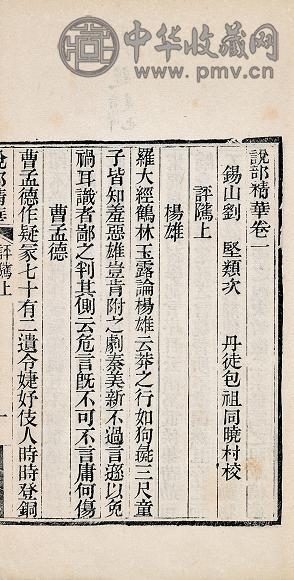 中华收藏网
www.pmv.cn
說部精華卷一
錫山劉　堅類次　丹徒包祖同曉村校
評隲上
楊雄
羅大經鶴林玉露論楊雄云莽之行如狗彘三尺童
子皆知羞惡雄豈肯附之劇秦美新不過言遜以免
禍耳識者鄙之判其側云危言既不可不言庸何傷
曹孟德
曹孟德作疑冢七十有二遺令婕妤伎人時時登銅
說部精華
評隲上
一